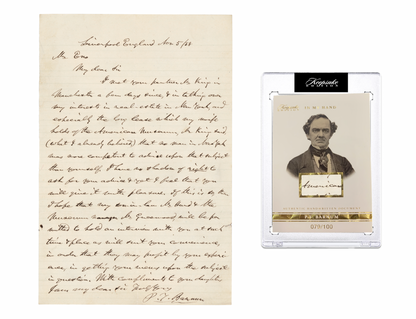 Liverpool England Nov 5/58
My dear Sir
I met your partner Mr King in
Manchester a few days since, & in talking over
my interests in real estate in New York, and
especially the long lease which my wife
holds of the American Museum, Mr King said
(what I already believed) that no man in
was more competent to advise upon that subject
than yourself. I have no shadow of right to
ask for your advice & yet I feel that you
will give it with pleasure. If this is so then
I hope that my son in law Mr Hurd & the
Museum manager Mr Greenwood will be per
mitted to hold an interview with you at such
time & place as will suit your convenience,
in order that they may profit by your experi
ence, in getting your views upon the subject
in question. With compliments to your
I am my dear sir
P. T. Barnum
Keepsake
EDITION
American
P.T. BARNUM
079/100